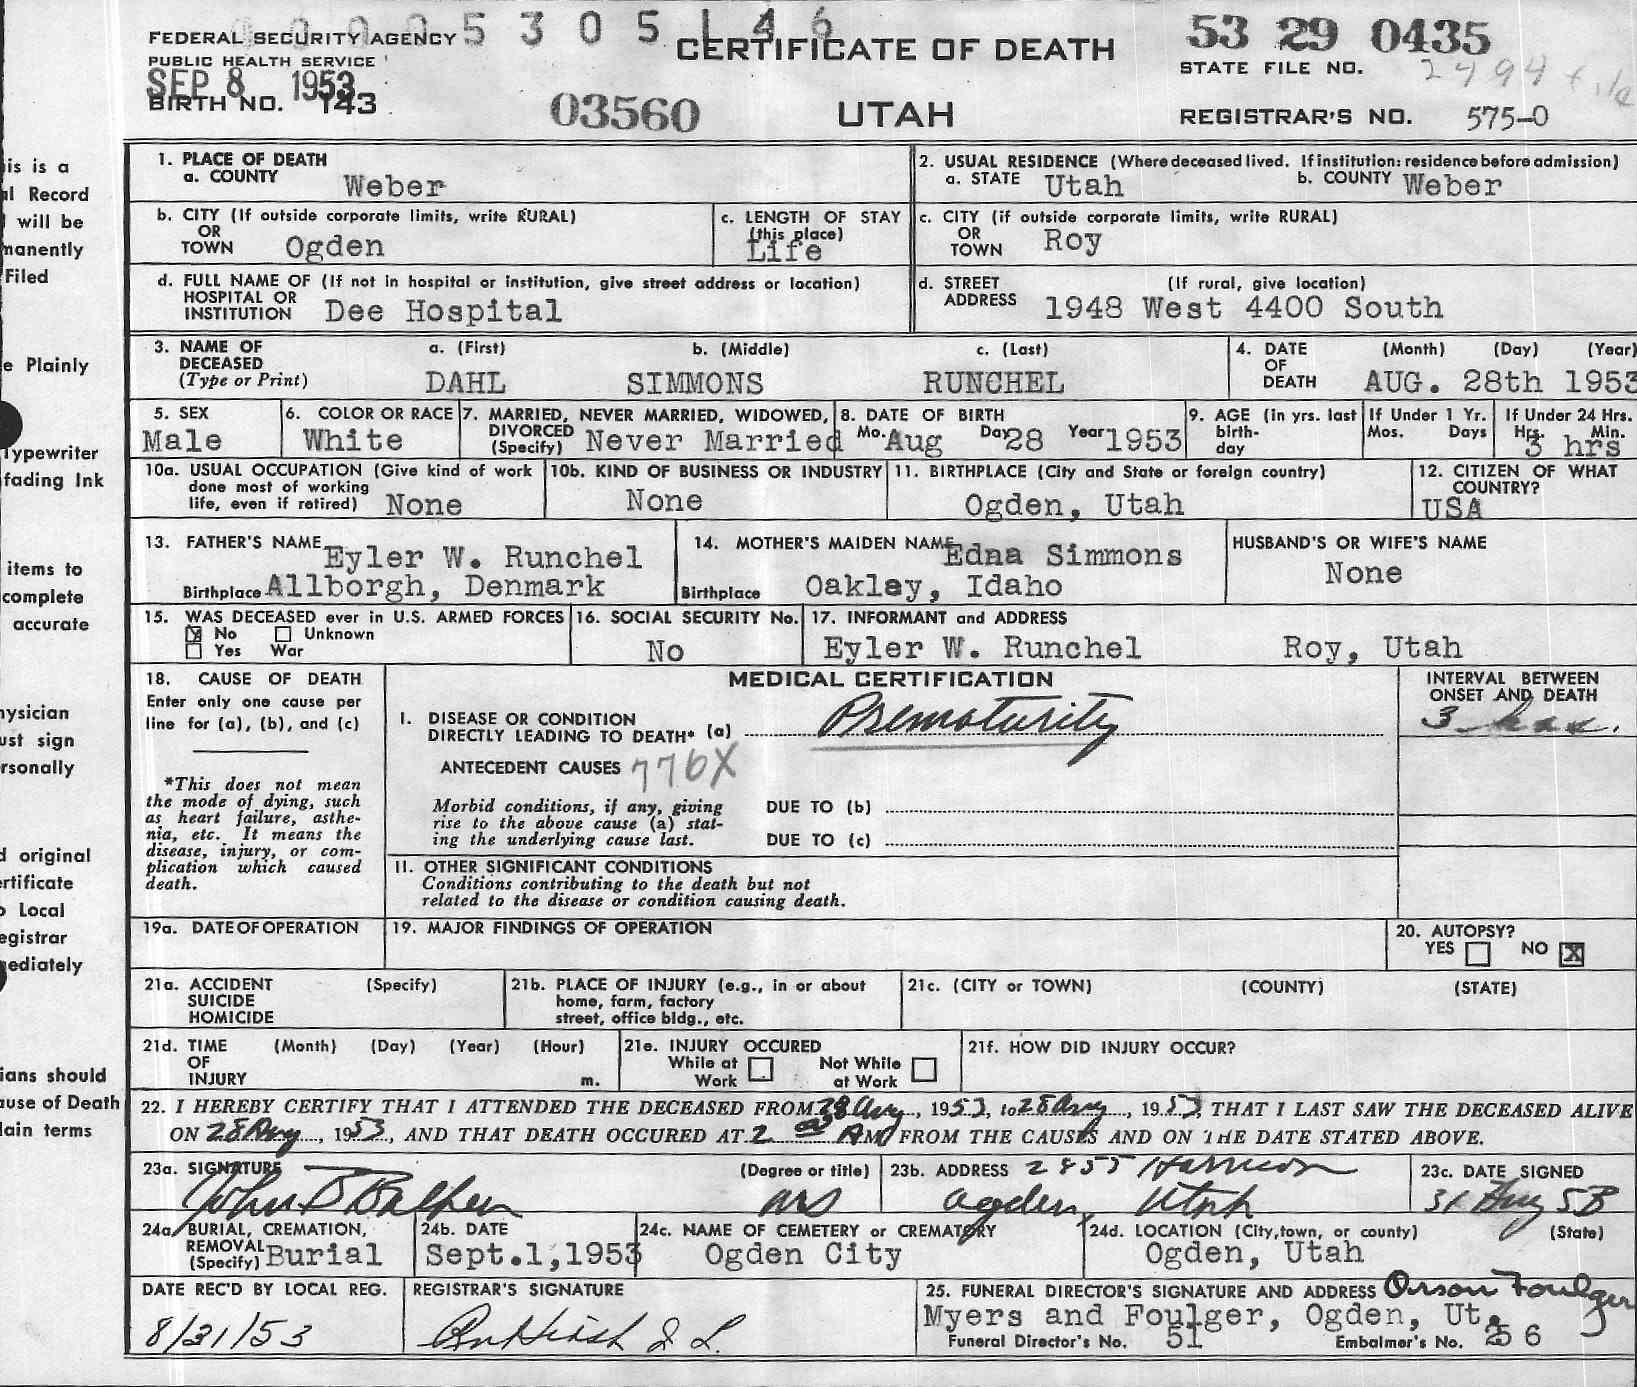 5 3 0 5 1 4 6
FEDERAL SECURITY AGENCY
PUBLIC HEALTH SERVICE
CERTIFICATE OF DEATH
53 29 0435
STATE FILE NO.
2494 file
SEP 8 1953
BIRTH NO. 143
03560
UTAH
REGISTRAR'S NO. 575-0
1. PLACE OF DEATH
a. COUNTY Weber
2. USUAL RESIDENCE (Where deceased lived. If institution: residence before admission)
a. STATE Utah b. COUNTY Weber
b. CITY (If outside corporate limits, write RURAL)
OR
TOWN Ogden
c. LENGTH OF STAY
(this place)
Life
c. CITY (if outside corporate limits, write RURAL)
OR
TOWN Roy
d. FULL NAME OF (If not in hospital or institution, give street address or location)
HOSPITAL OR
INSTITUTION Dee Hospital
d. STREET (If rural, give location)
ADDRESS 1948 West 4400 South
3. NAME OF a. (First) b. (Middle) c. (Last)
DECEASED
(Type or Print) DAHL SIMMONS RUNCHEL
4. DATE (Month) (Day) (Year)
OF
DEATH AUG. 28th 1953
5. SEX
Male
6. COLOR OR RACE
White
7. MARRIED, NEVER MARRIED, WIDOWED,
DIVORCED
(Specify) Never Married
8. DATE OF BIRTH
Mo. Aug Day 28 Year 1953
9. AGE (in yrs. last
birth-
day
If Under 1 Yr.
Mos. Days
If Under 24 Hrs.
Hrs. Min.
3 hrs
10a. USUAL OCCUPATION (Give kind of work
done most of working
life, even if retired) None
10b. KIND OF BUSINESS OR INDUSTRY
None
11. BIRTHPLACE (City and State or foreign country)
Ogden, Utah
12. CITIZEN OF WHAT
COUNTRY?
USA
13. FATHER'S NAME Eyler W. Runchel
Birthplace Allborgh, Denmark
14. MOTHER'S MAIDEN NAME Edna Simmons
Birthplace Oakley, Idaho
HUSBAND'S OR WIFE'S NAME
None
15. WAS DECEASED ever in U.S. ARMED FORCES
No Unknown
Yes War
16. SOCIAL SECURITY No.
No
17. INFORMANT and ADDRESS
Eyler W. Runchel Roy, Utah
18. CAUSE OF DEATH
Enter only one cause per
line for (a), (b), and (c)
*This does not mean
the mode of dying, such
as heart failure, asthe-
nia, etc. It means the
disease, injury, or com-
plication which caused
death.
MEDICAL CERTIFICATION
I. DISEASE OR CONDITION
DIRECTLY LEADING TO DEATH* (a) Prematurity
ANTECEDENT CAUSES 776X
Morbid conditions, if any, giving
rise to the above cause (a) stat-
ing the underlying cause last.
DUE TO (b)
DUE TO (c)
II. OTHER SIGNIFICANT CONDITIONS
Conditions contributing to the death but not
related to the disease or condition causing death.
INTERVAL BETWEEN
ONSET AND DEATH
3
19a. DATE OF OPERATION
19. MAJOR FINDINGS OF OPERATION
20. AUTOPSY?
YES NO X
21a. ACCIDENT (Specify)
SUICIDE
HOMICIDE
21b. PLACE OF INJURY (e.g., in or about
home, farm, factory
street, office bldg., etc.
21c. (CITY or TOWN) (COUNTY) (STATE)
21d. TIME (Month) (Day) (Year) (Hour)
OF
INJURY m.
21e. INJURY OCCURED
While at Not While
Work at Work
21f. HOW DID INJURY OCCUR?
22. I HEREBY CERTIFY THAT I ATTENDED THE DECEASED FROM 28 Aug, 1953, to 28 Aug, 1953, THAT I LAST SAW THE DECEASED ALIVE
ON 28 Aug, 1953, AND THAT DEATH OCCURED AT 2 00 AM FROM THE CAUSES AND ON THE DATE STATED ABOVE.
23a. SIGNATURE (Degree or title)
John
23b. ADDRESS 2955 Harrison
Ogden, Utah
23c. DATE SIGNED
31 Aug 53
24a. BURIAL, CREMATION,
REMOVAL
(Specify) Burial
24b. DATE
Sept.1,1953
24c. NAME OF CEMETERY or CREMATORY
Ogden City
24d. LOCATION (City, town, or county) (State)
Ogden, Utah
DATE REC'D BY LOCAL REG.
8/31/53
REGISTRAR'S SIGNATURE
25. FUNERAL DIRECTOR'S SIGNATURE AND ADDRESS Orson Foulger
Myers and Foulger, Ogden, Ut.
Funeral Director's No. 51 Embalmer's No. 256
is is a
al Record
will be
manently
Filed
e Plainly
Typewriter
fading Ink
items to
complete
accurate
hysician
ust sign
rsonally
d original
ertificate
o Local
egistrar
mediately
ians should
ause of Death
lain terms